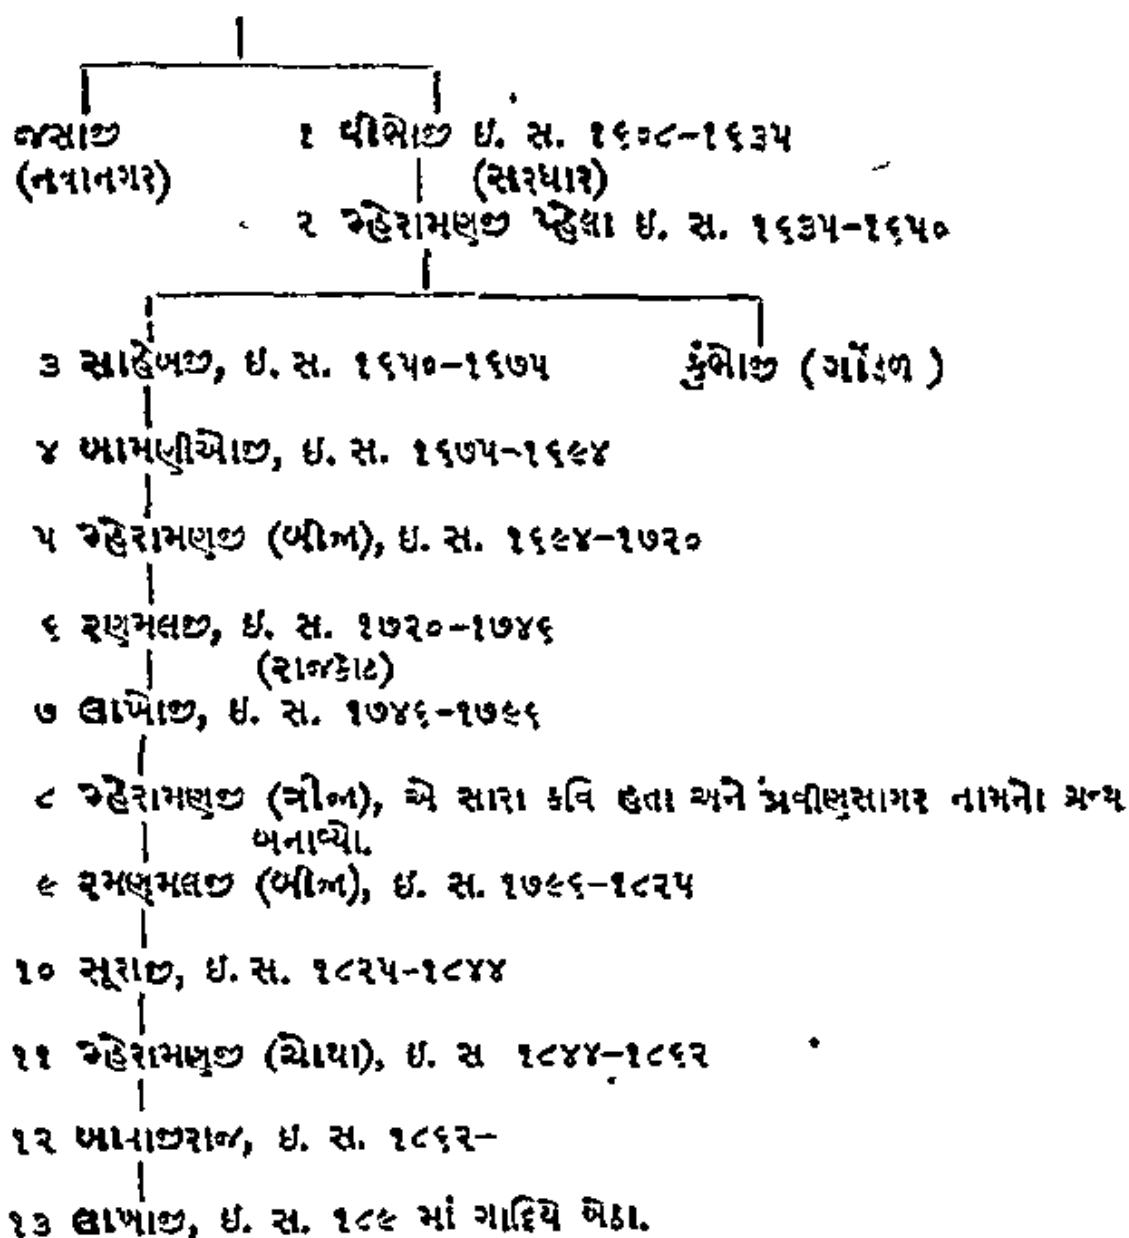 જસાજી ૧ વીભોજી ઇ. સ. ૧૬૦૮-૧૬૩૫
(નવાનગર) (સરધાર)
૨ મ્હેરામણજી પ્હેલા ઇ. સ. ૧૬૩૫-૧૬૫૦
૩ સાહેબજી, ઇ. સ. ૧૬૫૦-૧૬૭૫ કુંભોજી (ગોંડળ)
૪ બામણીઓજી, ઇ. સ. ૧૬૭૫-૧૬૯૪
૫ મ્હેરામણજી (બીજા), ઇ. સ. ૧૬૯૪-૧૭૨૦
૬ રણમલજી, ઇ. સ. ૧૭૨૦-૧૭૪૬
(રાજકોટ)
૭ લાખોજી, ઇ. સ. ૧૭૪૬-૧૭૯૬
૮ મ્હેરામણજી (ત્રીજા), એ સારા કવિ હતા અને પ્રવીણસાગર નામનો ગ્રન્થ
બનાવ્યો.
૯ રમણમલજી (બીજા), ઇ. સ. ૧૭૯૬-૧૮૨૫
૧૦ સૂરાજી, ઇ. સ. ૧૮૨૫-૧૮૪૪
૧૧ મ્હેરામણજી (ચોથા), ઇ. સ ૧૮૪૪-૧૮૬૨
૧૨ બાવાજીરાજ, ઇ. સ. ૧૮૬૨-
૧૩ લાખાજી, ઇ. સ. ૧૮૯ માં ગાદિયે બેઠા.